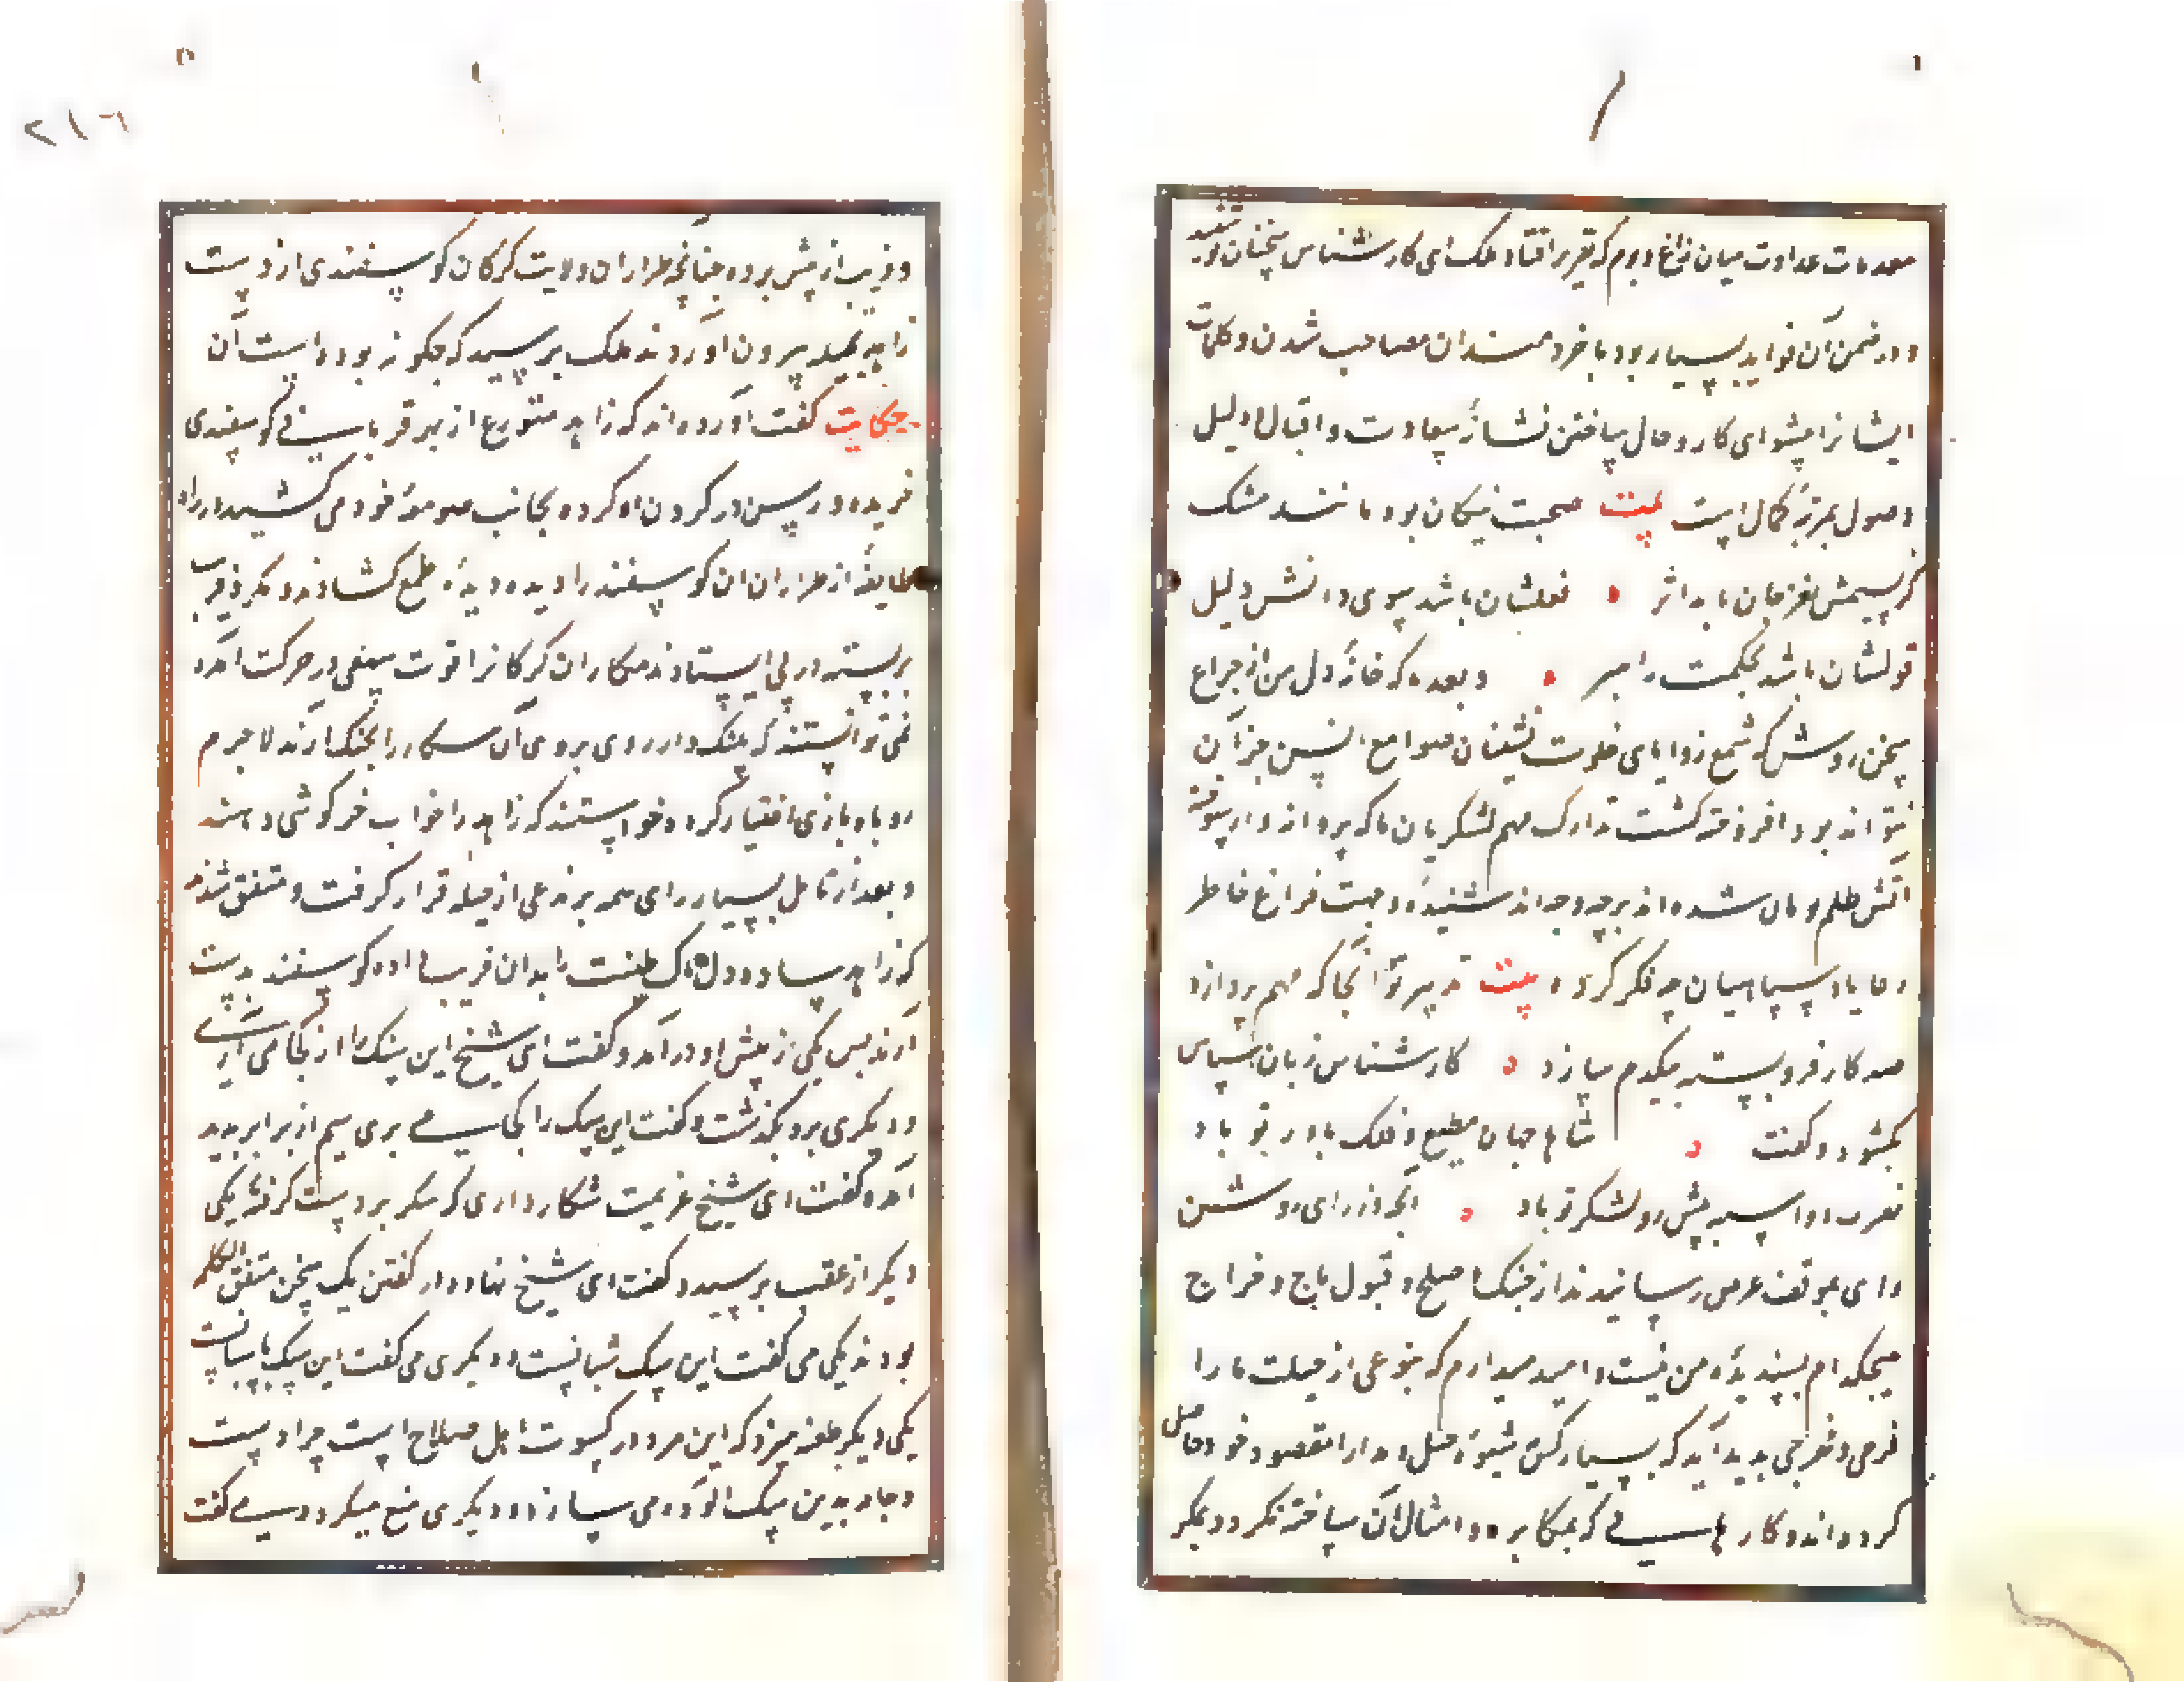 مقدمات عداوت میان زاغ و بوم که تقریر افتاد ملک ای کارشناس سخنان تو شنید
و در ضمن آن فواید بسیار بود با خردمندان مصاحب شدن و کلمات
ایشانرا پیشوای کار و حال ساختن نشانهٔ سعادت و اقبال و دلیل
وصول بمرتبهٔ کمال است بیت صحبت نیکان بود مانند مشک
کز نسیمش مغز جان یابد اثر فعلشان باشد بسوی دانش دلیل
قولشان باشد بحکمت راهبر و بعد که خانهٔ دل من از چراغ
سخن روشن که شمع زوایای خلوت نشینان صوامع انس جز آن
نتواند بود افروخته گشت تدارک مهم لشکریان ما که پروانه وار سوخته
آتش ظلم ومان شده‌اند بر چه وجه اندیشیده و جهت فراغ خاطر
رعایا و سپاهیان چه فکر کرده بیت تدبیر تو آنجا که مهم پردازد
صد کار فرو بسته بیکدم سازد کارشناس زبان بسپاس
بگشود و گفت شاها جهان مطیع و فلک یاور تو باد
نصرت اسپه پیش رو لشکر تو باد آنچه وزرای روشن
رای بموقف عرض رسانیدند از جنگ و صلح و قبول باج و خراج
هیچکدام پسندیدهٔ من نیست و امید میدارم که بنوعی از حیلت ما را
فرجی و مخرجی پدید آید که بسیار کس بشیوهٔ حیل و مدارا مقصود خود حاصل
کرده‌اند و کارهایی که بمکابره و امثال آن ساخته نگردد بمکر
و فریب از پیش برده چنانچه طراران ولایت گرگان گوسفندی از دست
زاهد بحیله بیرون آوردند ملک پرسید که چگونه بوده است آن
حکایت گفت آورده‌اند که زاهد متورع از بهر قربانی گوسفندی
خریده و رسن در گردن او کرده بجانب صومعهٔ خود می کشید در راه
طایفهٔ از طراران آن گوسفند را دیده دیدهٔ طمع گشادند و کمر فریب
بر بسته در پی ایستادند مکاران گرگانرا قوت سبعی در حرکت آمده
نمی توانستند که پلنگ وار روی بروی آن شکار را بچنگ آرند لاجرم
روباه بازی اختیار کرده خواستند که زاهد را خواب خرگوشی دهند
و بعد از تامل بسیار رای همه بر نوعی از حیله قرار گرفت و متفق شدند
که زاهد ساده دل پاک طینت را بدان فریب داده گوسفند بدست
آرند پس یکی از پیش او در آمد و گفت ای شیخ این سنک را از کجا می آری
و دیگری برو بگذشت و گفت این سک را بکجا می بری سیم از برابر پدید
آمد و گفت ای شیخ عزیمت شکار داری که سک بر دست گرفته یکی
دیگر از عقب برسید و گفت ای شیخ نهاده در گفتن یک سخن متفق الکلمه
بودند یکی می گفت این سک شبانست و دیگری می گفت این سک پاسبانست
یکی دیگر طعنه میزد که این مرد در کسوت اهل صلاح است چرا دست
و جامه بدین سک آلوده می سازد و دیگری منع میکرد و می گفت
٢١٦